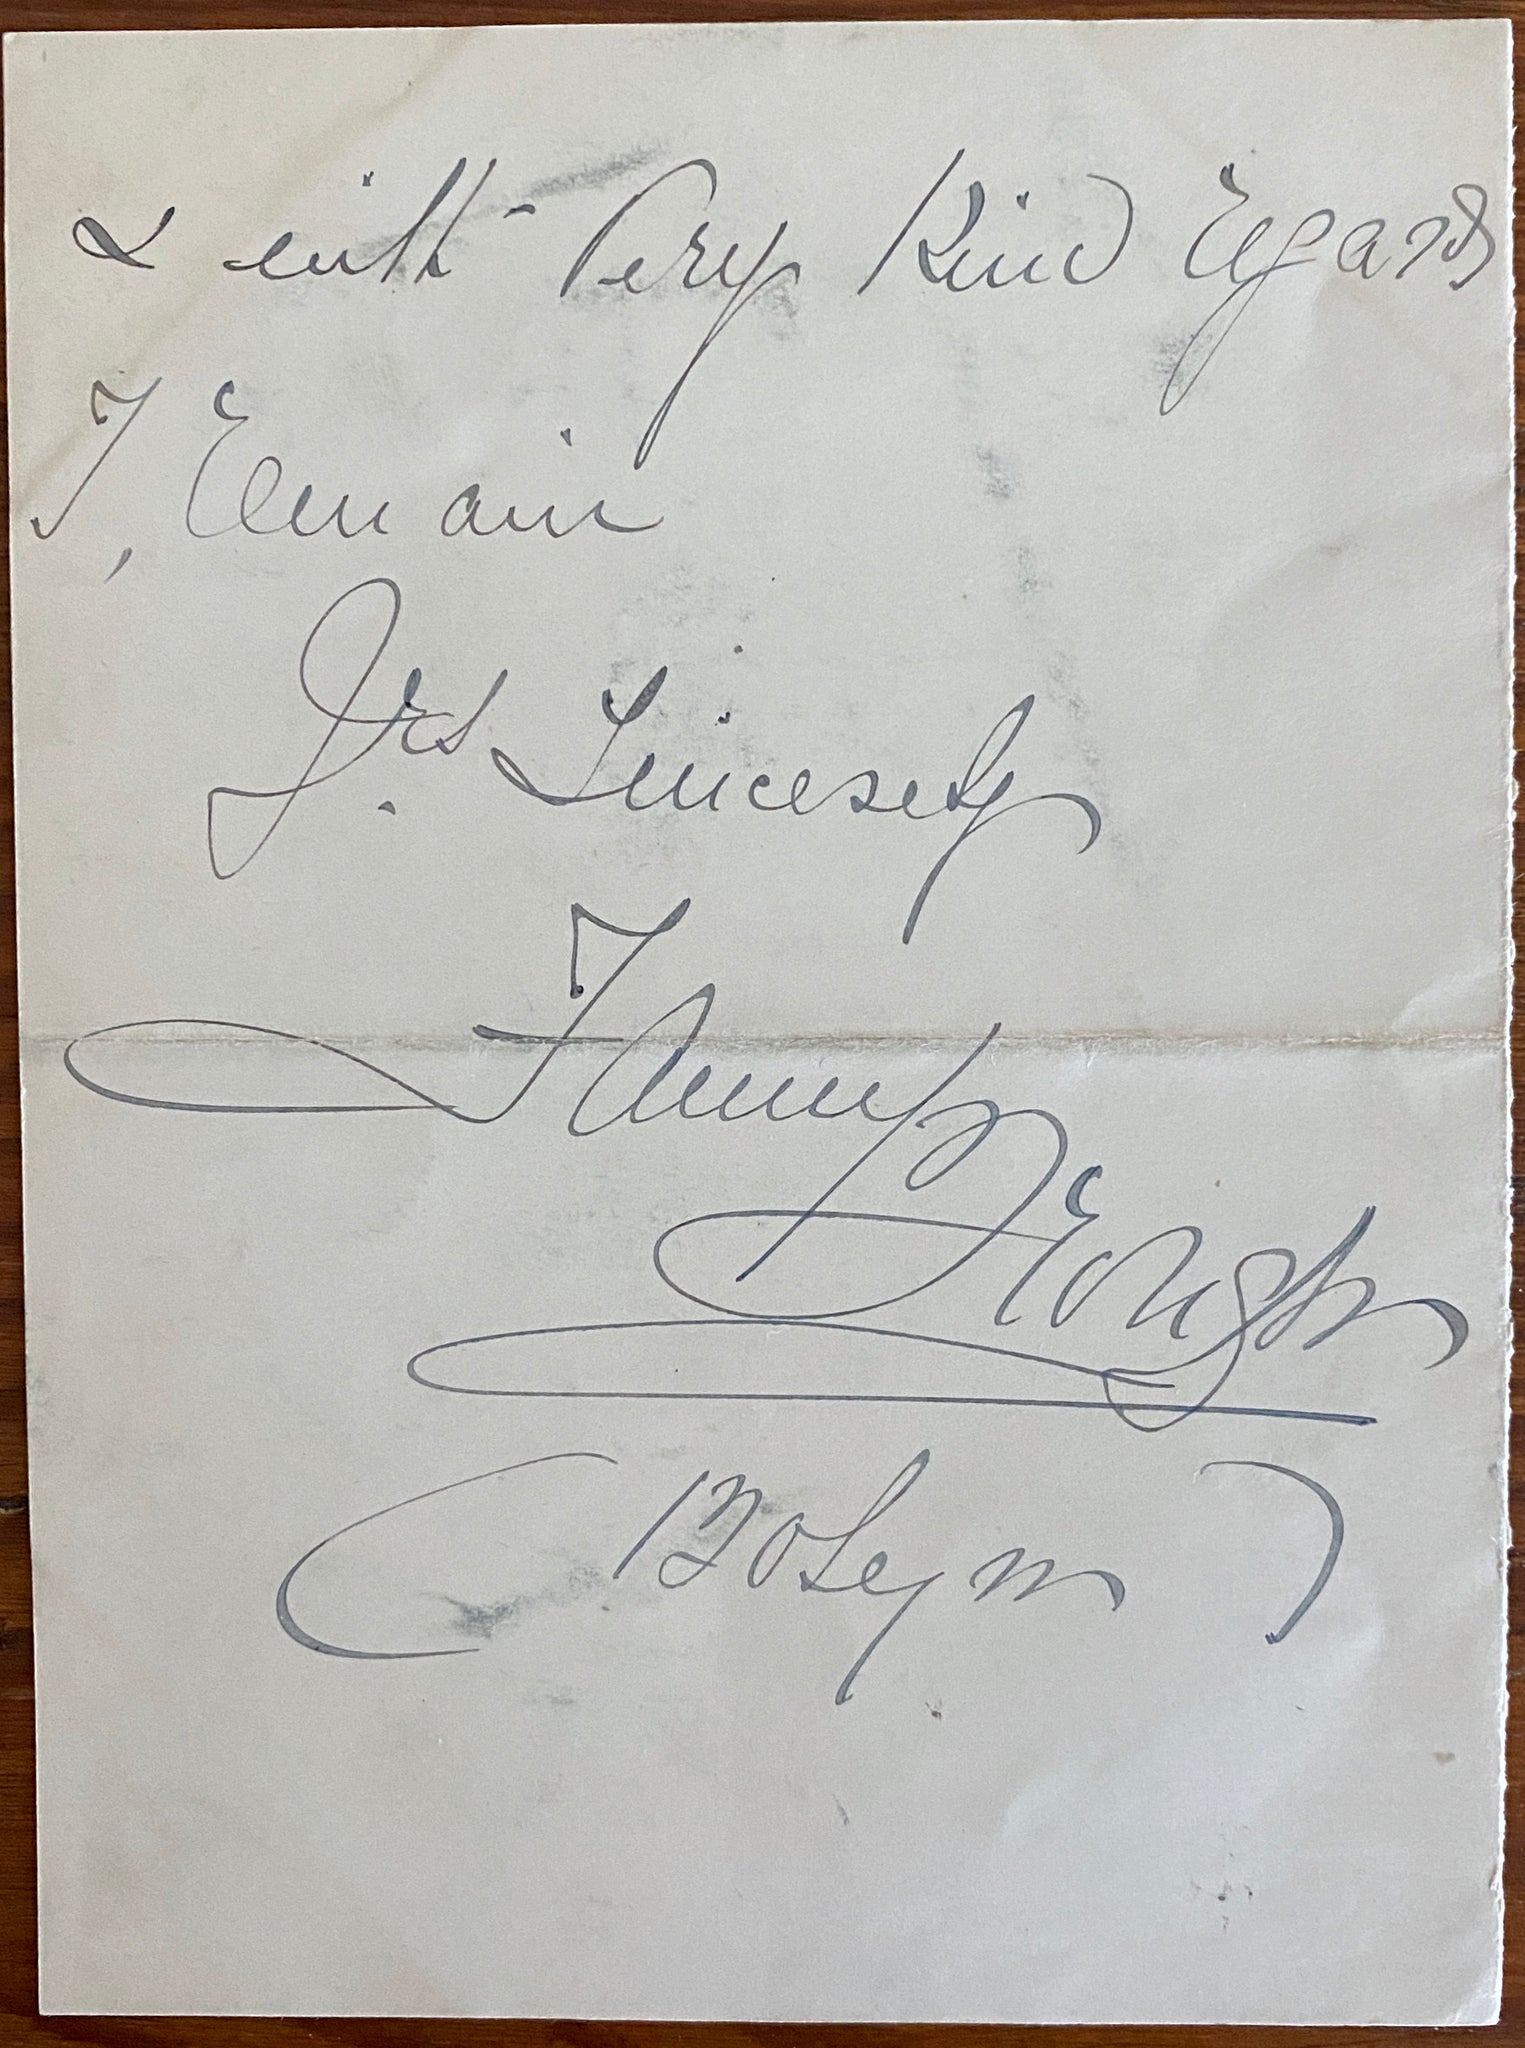 & with Very Kind Regards
I, Remain
Yrs. Sincerely
Fanny Wright
(Boleyn)